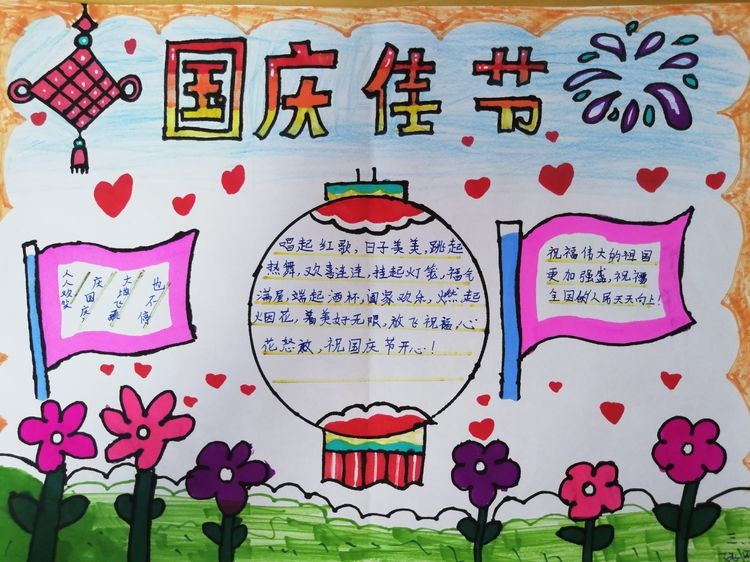 国庆佳节
人人欢笑
庆国庆!
大
也不停
唱起红歌,日子美美,跳起
热舞,欢喜连连,挂起灯笼,福气
满屋,端起酒杯,阖家欢乐,燃起
烟花,着美好无限,放飞祝福,心
花怒放,祝国庆节开心!
祝福伟大的祖国
更加强盛,祝福
全国的人民天天向上!
三、